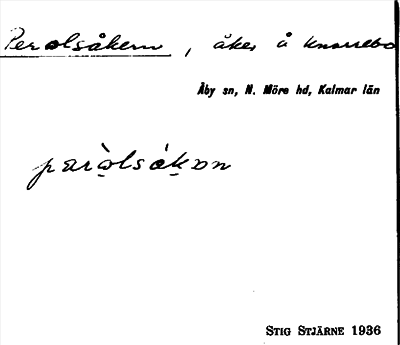 Perolsåkern, åker å Knarrebo
Åby sn, N. Möre hd, Kalmar län
pæràlsákɒn
STIG STJÄRNE 1936